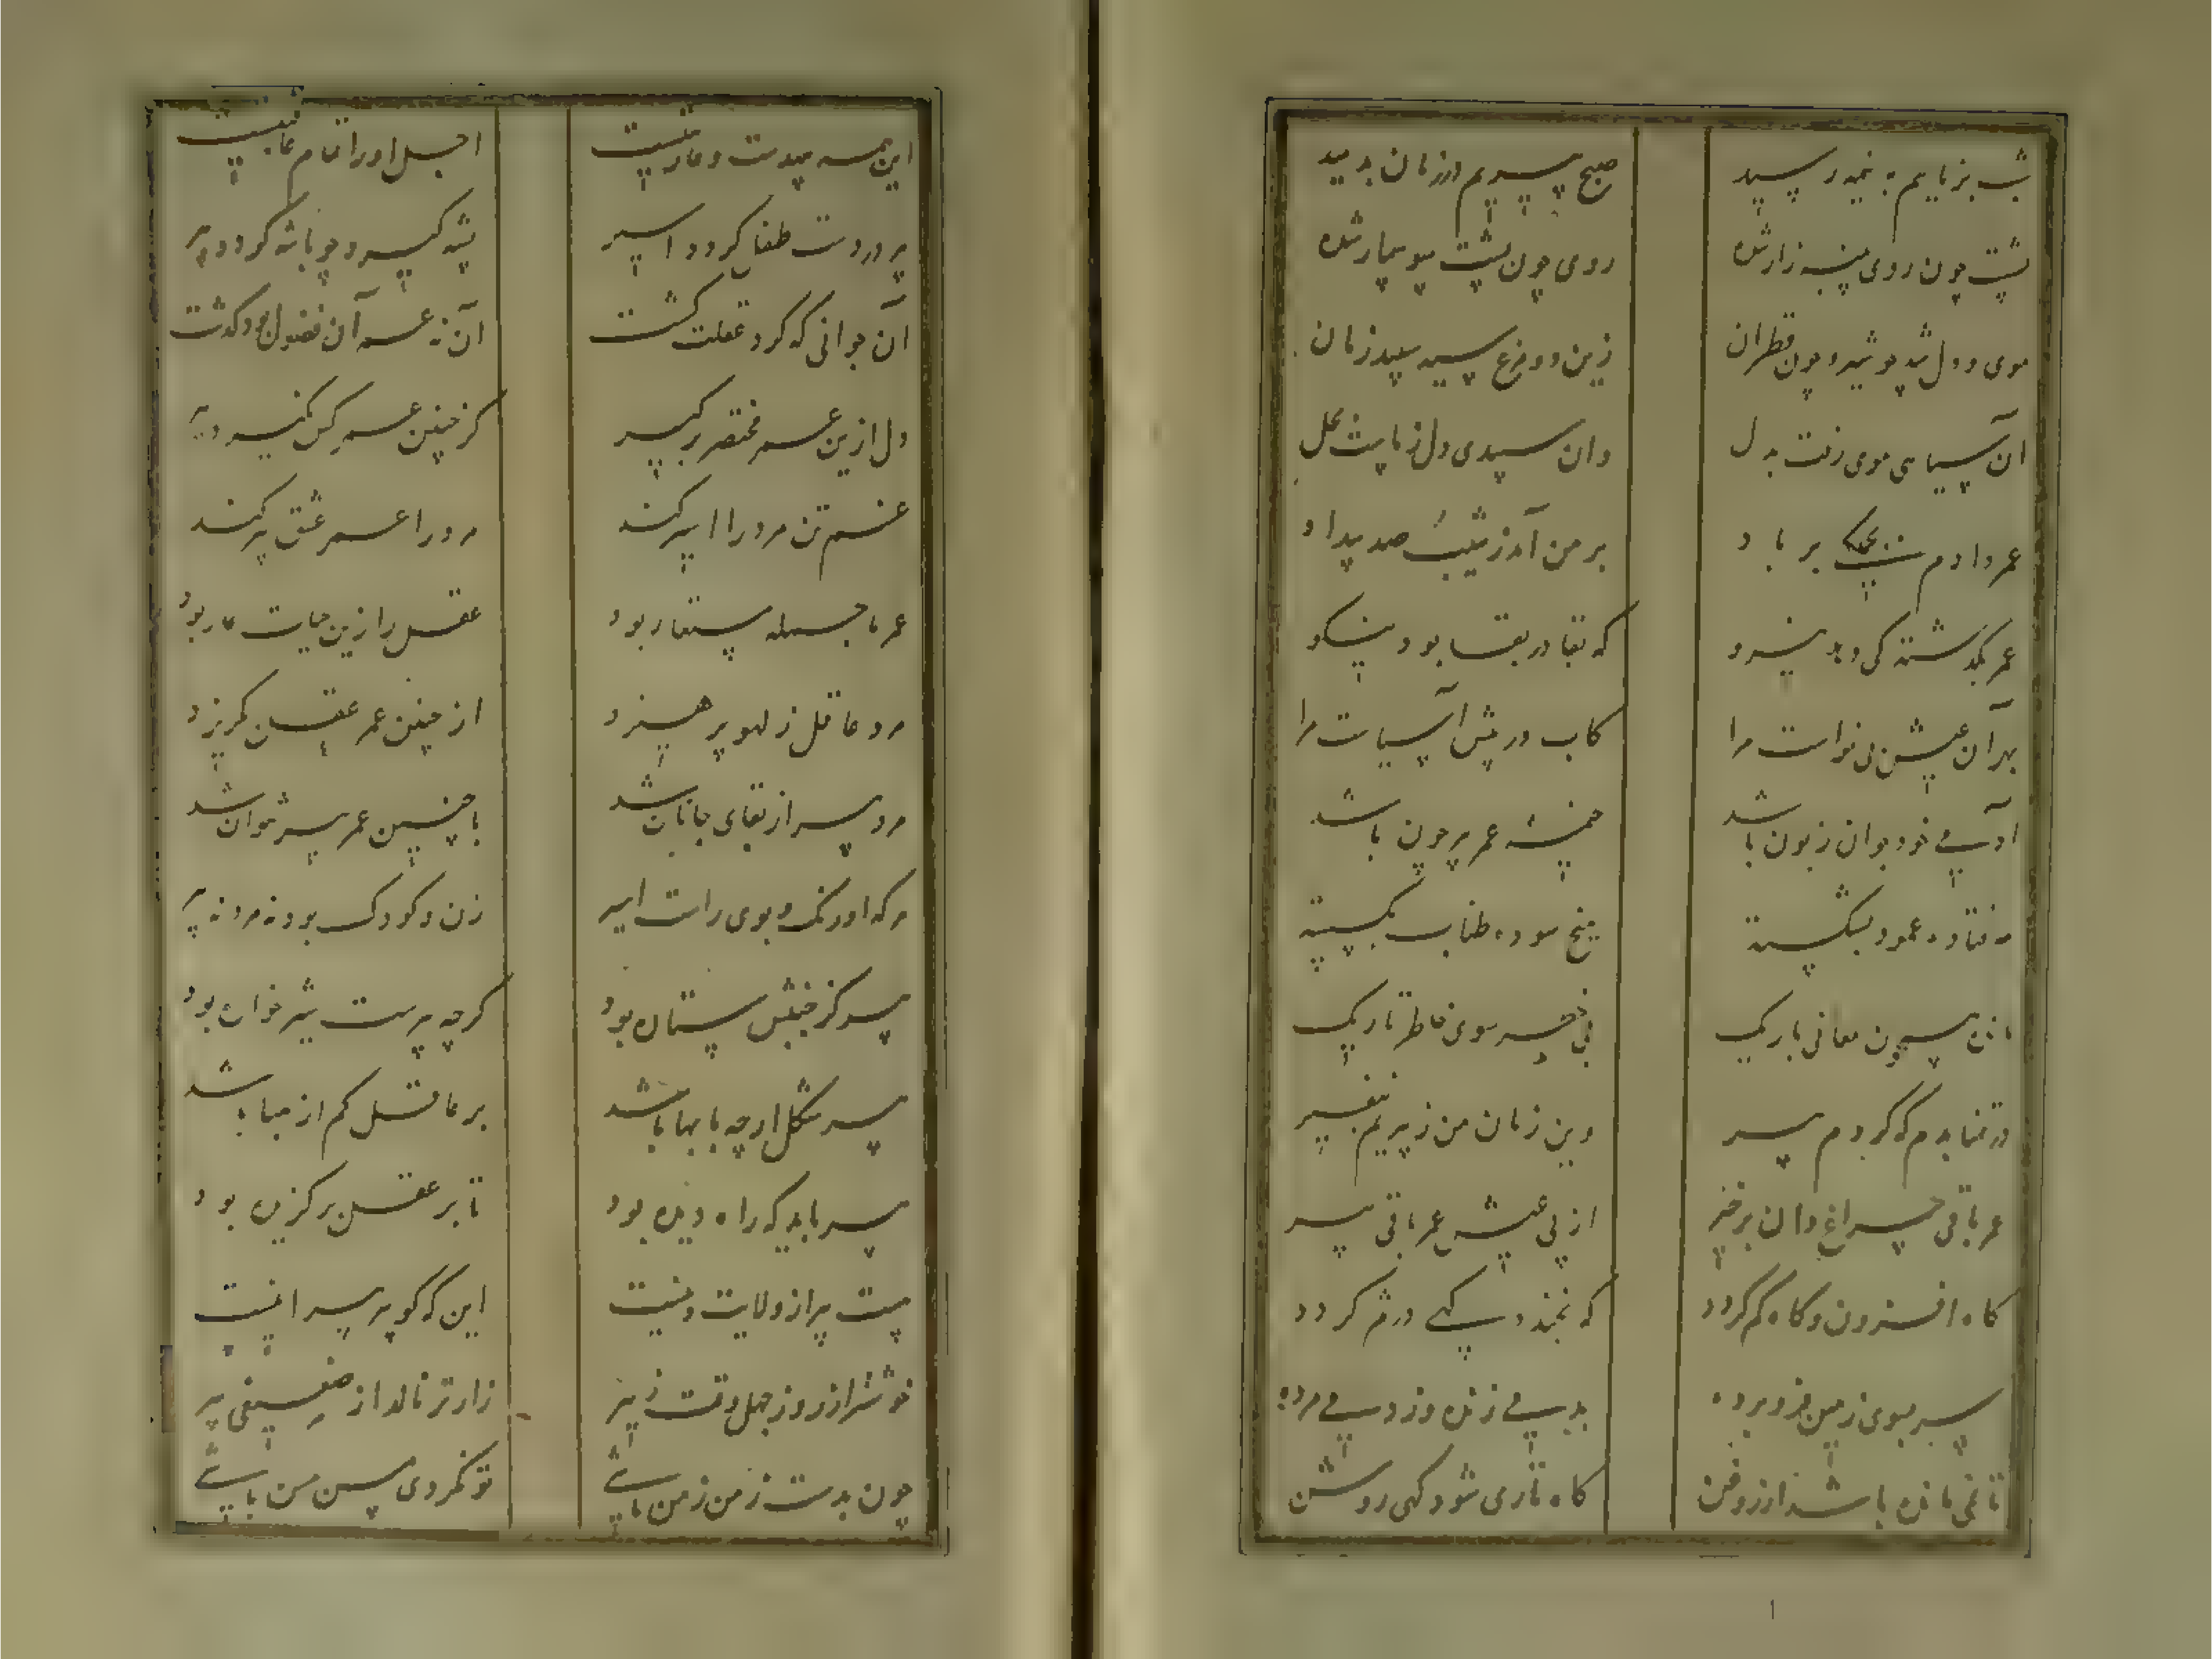 شب برنایم به نیمه رسید صبح پیریم در زمان بدمید
پشت چون روی پنبه زار شده روی چون پشت سوسمار شده
موی و دل شد چو شیر و چون قطران زین دو مرغ سیه سپید زمان
آن سیاهی موی رفت بدل وان سپیدی دل
عمر دادم بر باد بر من آمد ز شیب صد بیداد
عمر بگذشته کی دهد نیرو که بقا در بقا بود نیکو
بهر آن عیش بی نواست مرا کاب در پیش آسیاست مرا
آدمی خود جوان زبون باشد خیمه عمر پیر چون باشد
مه فتاده عمود بشکسته میخ سوده طناب بگسسته
مانده پس چون معانی باریک سوی خاطر تاریک
در تمنا بدم که گردم پیر وین زمان من ز پیریم بنفیر
عمر باقی چراغ دان بر خیز از پی عیش عمر باقی
گاه افزون و گاه کم گردد که بخندد گهی دژم گردد
سر سوی زمین فرو برده بدمی زنده وز دمی مرده
تا نمی مانده باشد از روغن گاه تاری شود گهی روشن
این همه بیهدست و عاریتست اجل او را تمام عاقبتست
گردد اسیر پشه گیرد چو باشه گردد پیر
آن جوانی که گرد غفلت گشت آن نه عمر آن فضول بود گذشت
دل ازین عمر مختصر برگیر کز چنین عمر کس نگیرد
غم تن مرد را اسیر کند مرد را عمر عشق پیر کند
عمر ما جمله مستعار بود عقل را زین حیات عار بود
مرد عاقل ز لهو پرهیزد از چنین عمر عقل بگریزد
مرد پیر از بقای جانان شد با چنین عمر پیر نتوان شد
هر که او رنگ و بوی راست اسیر زن و کودک بود نه مرد نه پیر
پیر کز جنبش ستاره بود گرچه پیرست شیرخواره بود
پیر مشکل ار چه با بها باشد بر عاقل کم از صبا باشد
پیر باید که راه دیده بود تا بر عقل برگزیده بود
هست پیر از ولایت دینست این که گویی پیر را اینست
خوشتر از روز جهل وقت زفیر زارتر نالد از ضعیفی پیر
چون بدست ز من ز من باشی تو نگردی پس من باشی